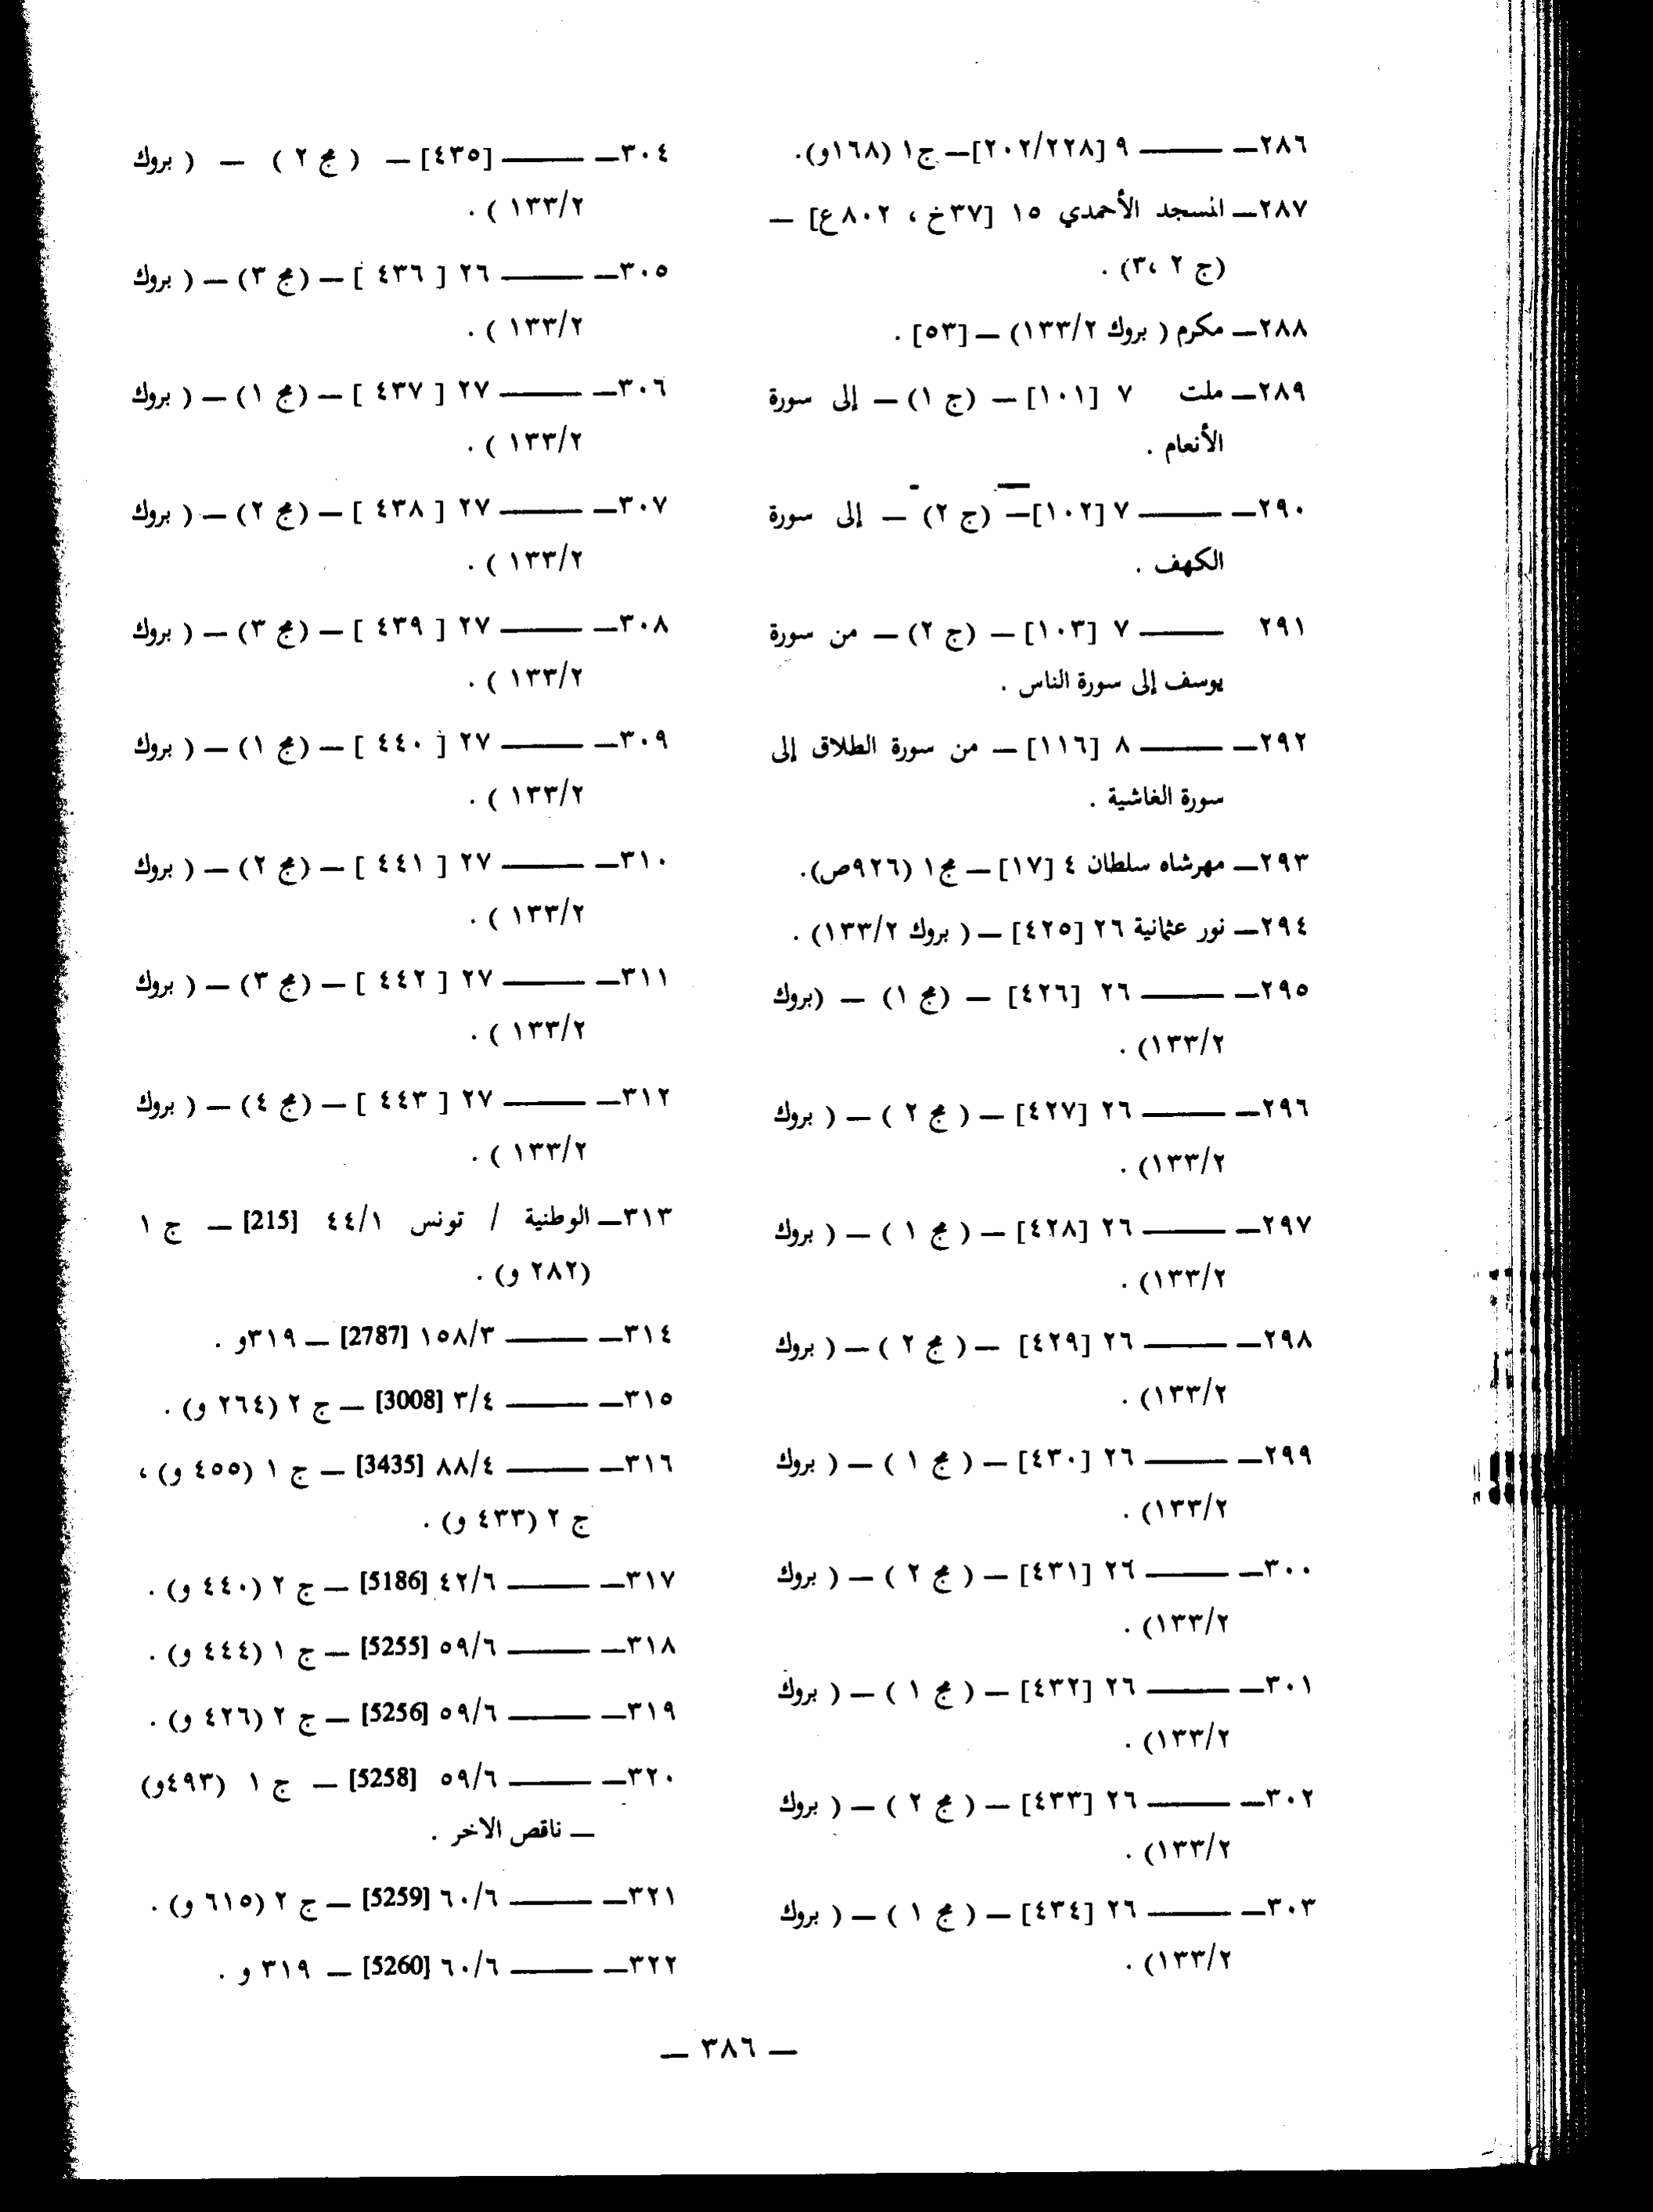 ٢٨٦ــ ــــــــ ٩ [٢٠٢/٢٢٨]ــ ج١ (١٦٨و).
٢٨٧ــ المسجد الأحمدي ١٥ [٣٧خ ، ٨٠٢ع] ــ
(ج ٢ ،٣) .
٢٨٨ــ مكرم ( بروك ١٣٣/٢) ــ [٥٣] .
٢٨٩ــ ملت ٧ [١٠١] ــ (ج ١) ــ إلى سورة
الأنعام .
٢٩٠ــ ــــــــ ٧ [١٠٢]ــ (ج ٢) ــ إلى سورة
الكهف .
٢٩١ ــــــــ ٧ [١٠٣] ــ (ج ٢) ــ من سورة
يوسف إلى سورة الناس .
٢٩٢ــ ــــــــ ٨ [١١٦] ــ من سورة الطلاق إلى
سورة الغاشية .
٢٩٣ــ مهرشاه سلطان ٤ [١٧] ــ مج١ (٩٢٦ص).
٢٩٤ــ نور عثمانية ٢٦ [٤٢٥] ــ ( بروك ١٣٣/٢) .
٢٩٥ــ ــــــــ ٢٦ [٤٢٦] ــ (مج ١) ــ (بروك
١٣٣/٢) .
٢٩٦ــ ــــــــ ٢٦ [٤٢٧] ــ ( مج ٢ ) ــ ( بروك
١٣٣/٢) .
٢٩٧ــ ــــــــ ٢٦ [٤٢٨] ــ ( مج ١ ) ــ ( بروك
١٣٣/٢) .
٢٩٨ــ ــــــــ ٢٦ [٤٢٩] ــ ( مج ٢ ) ــ ( بروك
١٣٣/٢) .
٢٩٩ــ ــــــــ ٢٦ [٤٣٠] ــ ( مج ١ ) ــ ( بروك
١٣٣/٢) .
٣٠٠ــ ــــــــ ٢٦ [٤٣١] ــ ( مج ٢ ) ــ ( بروك
١٣٣/٢) .
٣٠١ــ ــــــــ ٢٦ [٤٣٢] ــ ( مج ١ ) ــ ( بروك
١٣٣/٢) .
٣٠٢ــ ــــــــ ٢٦ [٤٣٣] ــ ( مج ٢ ) ــ ( بروك
١٣٣/٢) .
٣٠٣ــ ــــــــ ٢٦ [٤٣٤] ــ ( مج ١ ) ــ ( بروك
١٣٣/٢) .
٣٠٤ــ ــــــــ [٤٣٥] ــ ( مج ٢ ) ــ ( بروك
١٣٣/٢ ) .
٣٠٥ــ ــــــــ ٢٦ [ ٤٣٦ ] ــ (مج ٣) ــ ( بروك
١٣٣/٢ ) .
٣٠٦ــ ــــــــ ٢٧ [ ٤٣٧ ] ــ (مج ١) ــ ( بروك
١٣٣/٢ ) .
٣٠٧ــ ــــــــ ٢٧ [ ٤٣٨ ] ــ (مج ٢) ــ ( بروك
١٣٣/٢ ) .
٣٠٨ــ ــــــــ ٢٧ [ ٤٣٩ ] ــ (مج ٣) ــ ( بروك
١٣٣/٢ ) .
٣٠٩ــ ــــــــ ٢٧ [ ٤٤٠ ] ــ (مج ١) ــ ( بروك
١٣٣/٢ ) .
٣١٠ــ ــــــــ ٢٧ [ ٤٤١ ] ــ (مج ٢) ــ ( بروك
١٣٣/٢ ) .
٣١١ــ ــــــــ ٢٧ [ ٤٤٢ ] ــ (مج ٣) ــ ( بروك
١٣٣/٢ ) .
٣١٢ــ ــــــــ ٢٧ [ ٤٤٣ ] ــ (مج ٤) ــ ( بروك
١٣٣/٢ ) .
٣١٣ــ الوطنية / تونس ٤٤/١ [215] ــ ج ١
(٢٨٢ و) .
٣١٤ــ ــــــــ ١٥٨/٣ [2787] ــ ٣١٩و .
٣١٥ــ ــــــــ ٣/٤ [3008] ــ ج ٢ (٢٦٤ و) .
٣١٦ــ ــــــــ ٨٨/٤ [3435] ــ ج ١ (٤٥٥ و) ،
ج ٢ (٤٣٣ و) .
٣١٧ــ ــــــــ ٤٢/٦ [5186] ــ ج ٢ (٤٤٠ و) .
٣١٨ــ ــــــــ ٥٩/٦ [5255] ــ ج ١ (٤٤٤ و) .
٣١٩ــ ــــــــ ٥٩/٦ [5256] ــ ج ٢ (٤٢٦ و) .
٣٢٠ــ ــــــــ ٥٩/٦ [5258] ــ ج ١ (٤٩٣و)
ــ ناقص الاخر .
٣٢١ــ ــــــــ ٦٠/٦ [5259] ــ ج ٢ (٦١٥ و) .
٣٢٢ــ ــــــــ ٦٠/٦ [5260] ــ ٣١٩ و .
ــ ٣٨٦ ــ